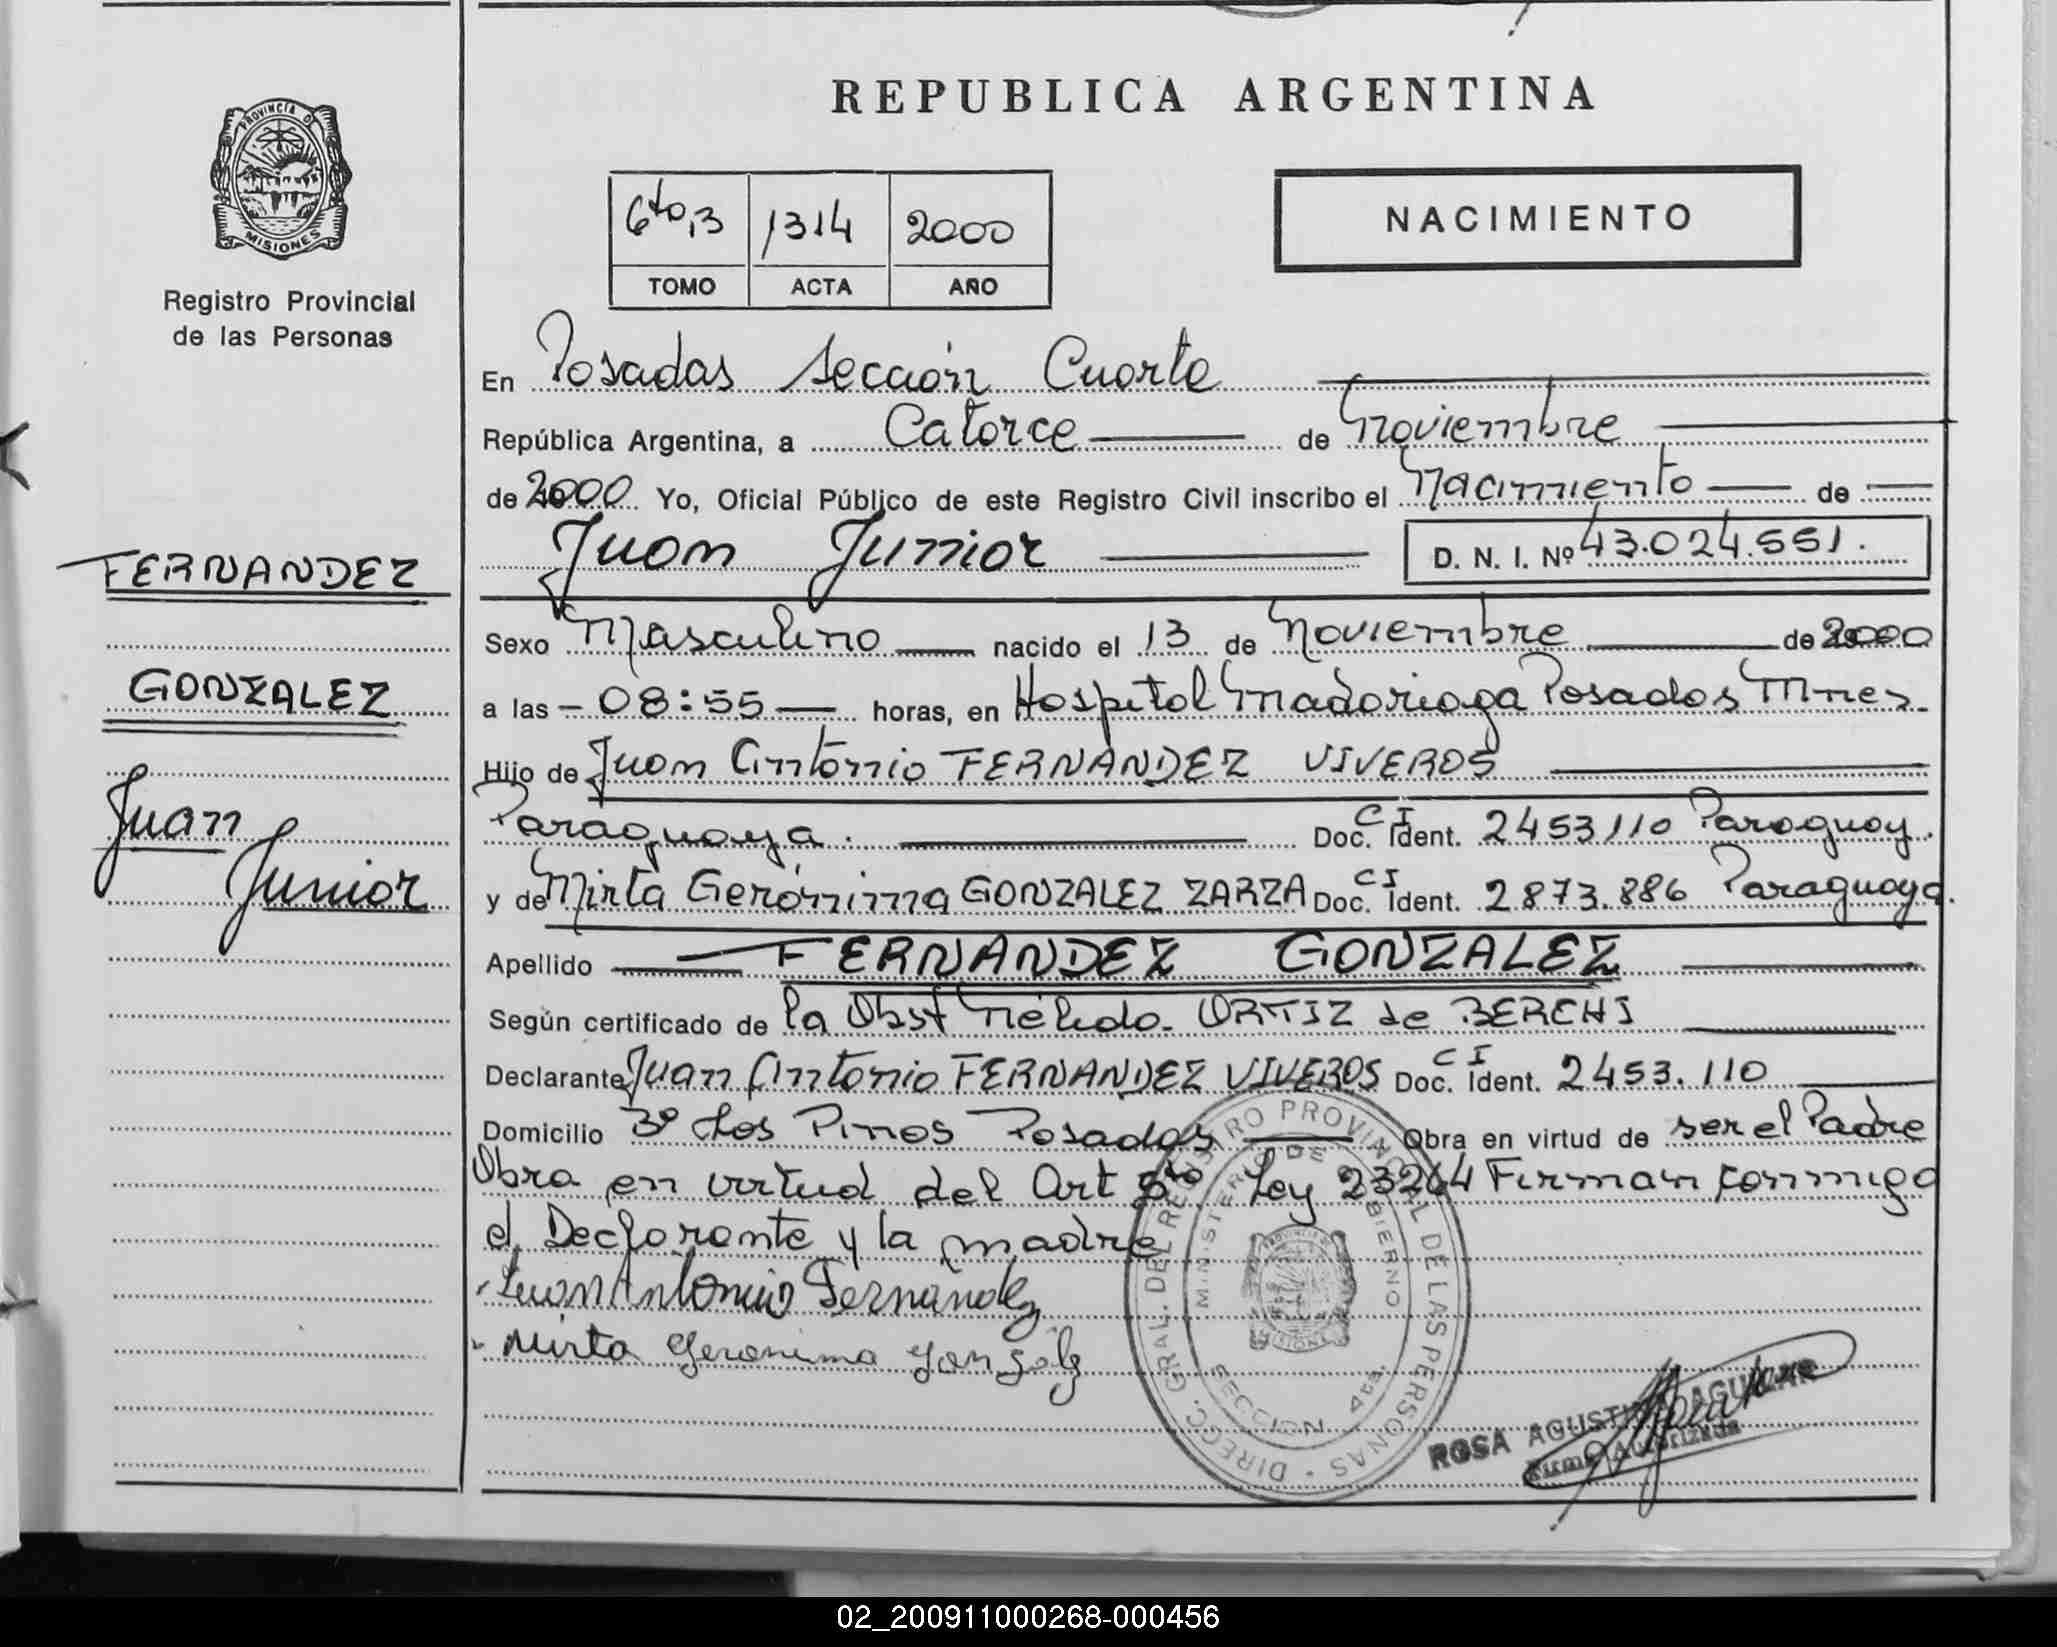 REPUBLICA ARGENTINA
PROVINCIA DE
MISIONES
Registro Provincial
de las Personas
6to,3 1314 2000
TOMO ACTA AÑO
NACIMIENTO
En Posadas Sección Cuarta
República Argentina, a Catorce de Noviembre
de 2000 Yo, Oficial Público de este Registro Civil inscribo el Nacimiento de
Juan Junior D. N. I. Nº 43.024.551.
FERNANDEZ
GONZALEZ
Juan
Junior
Sexo Masculino nacido el 13 de Noviembre de 2000
a las - 08:55 horas, en Hospital Madariaga Posadas Mnes.
Hijo de Juan Antonio FERNANDEZ VIVEROS
Paraguaya. Doc. Ident. CI 2453110 Paraguay.
y de Mirta Gerónima GONZALEZ ZARZA Doc. Ident. CI 2.873.886 Paraguaya.
Apellido FERNANDEZ GONZALEZ
Según certificado de la Obst Nélida ORTIZ de BERCHI
Declarante Juan Antonio FERNANDEZ VIVEROS Doc. Ident. CI 2453.110
Domicilio Bº Los Pinos Posadas Obra en virtud de ser el Padre
Obra en virtud del Art 5to Ley 23264 Firman conmigo
el Declarante y la madre
Juan Antonio Fernandez
Mirta Geronima Gonzalez
DIRECC. GRAL. DEL REGISTRO PROVINCIAL DE LAS PERSONAS
MINISTERIO DE GOBIERNO
SECCION 4ta.
ROSA AGUSTINA AGUILAR
Firma Autorizada
02_200911000268-000456